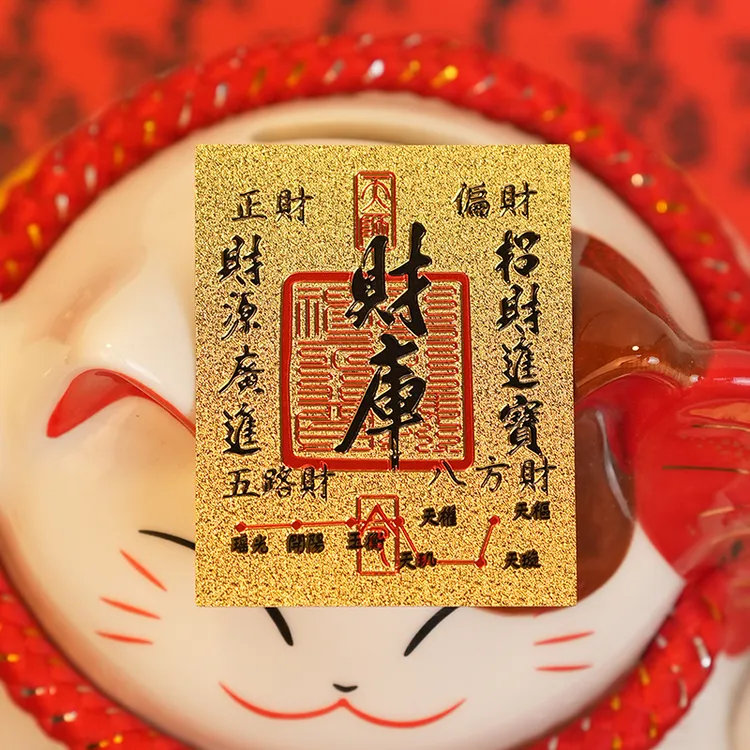 正財
偏財
招財進寶
財庫
財源廣進
五路財
八方財
天權
天樞
瑤光
開陽
玉衡
天璣
天璇